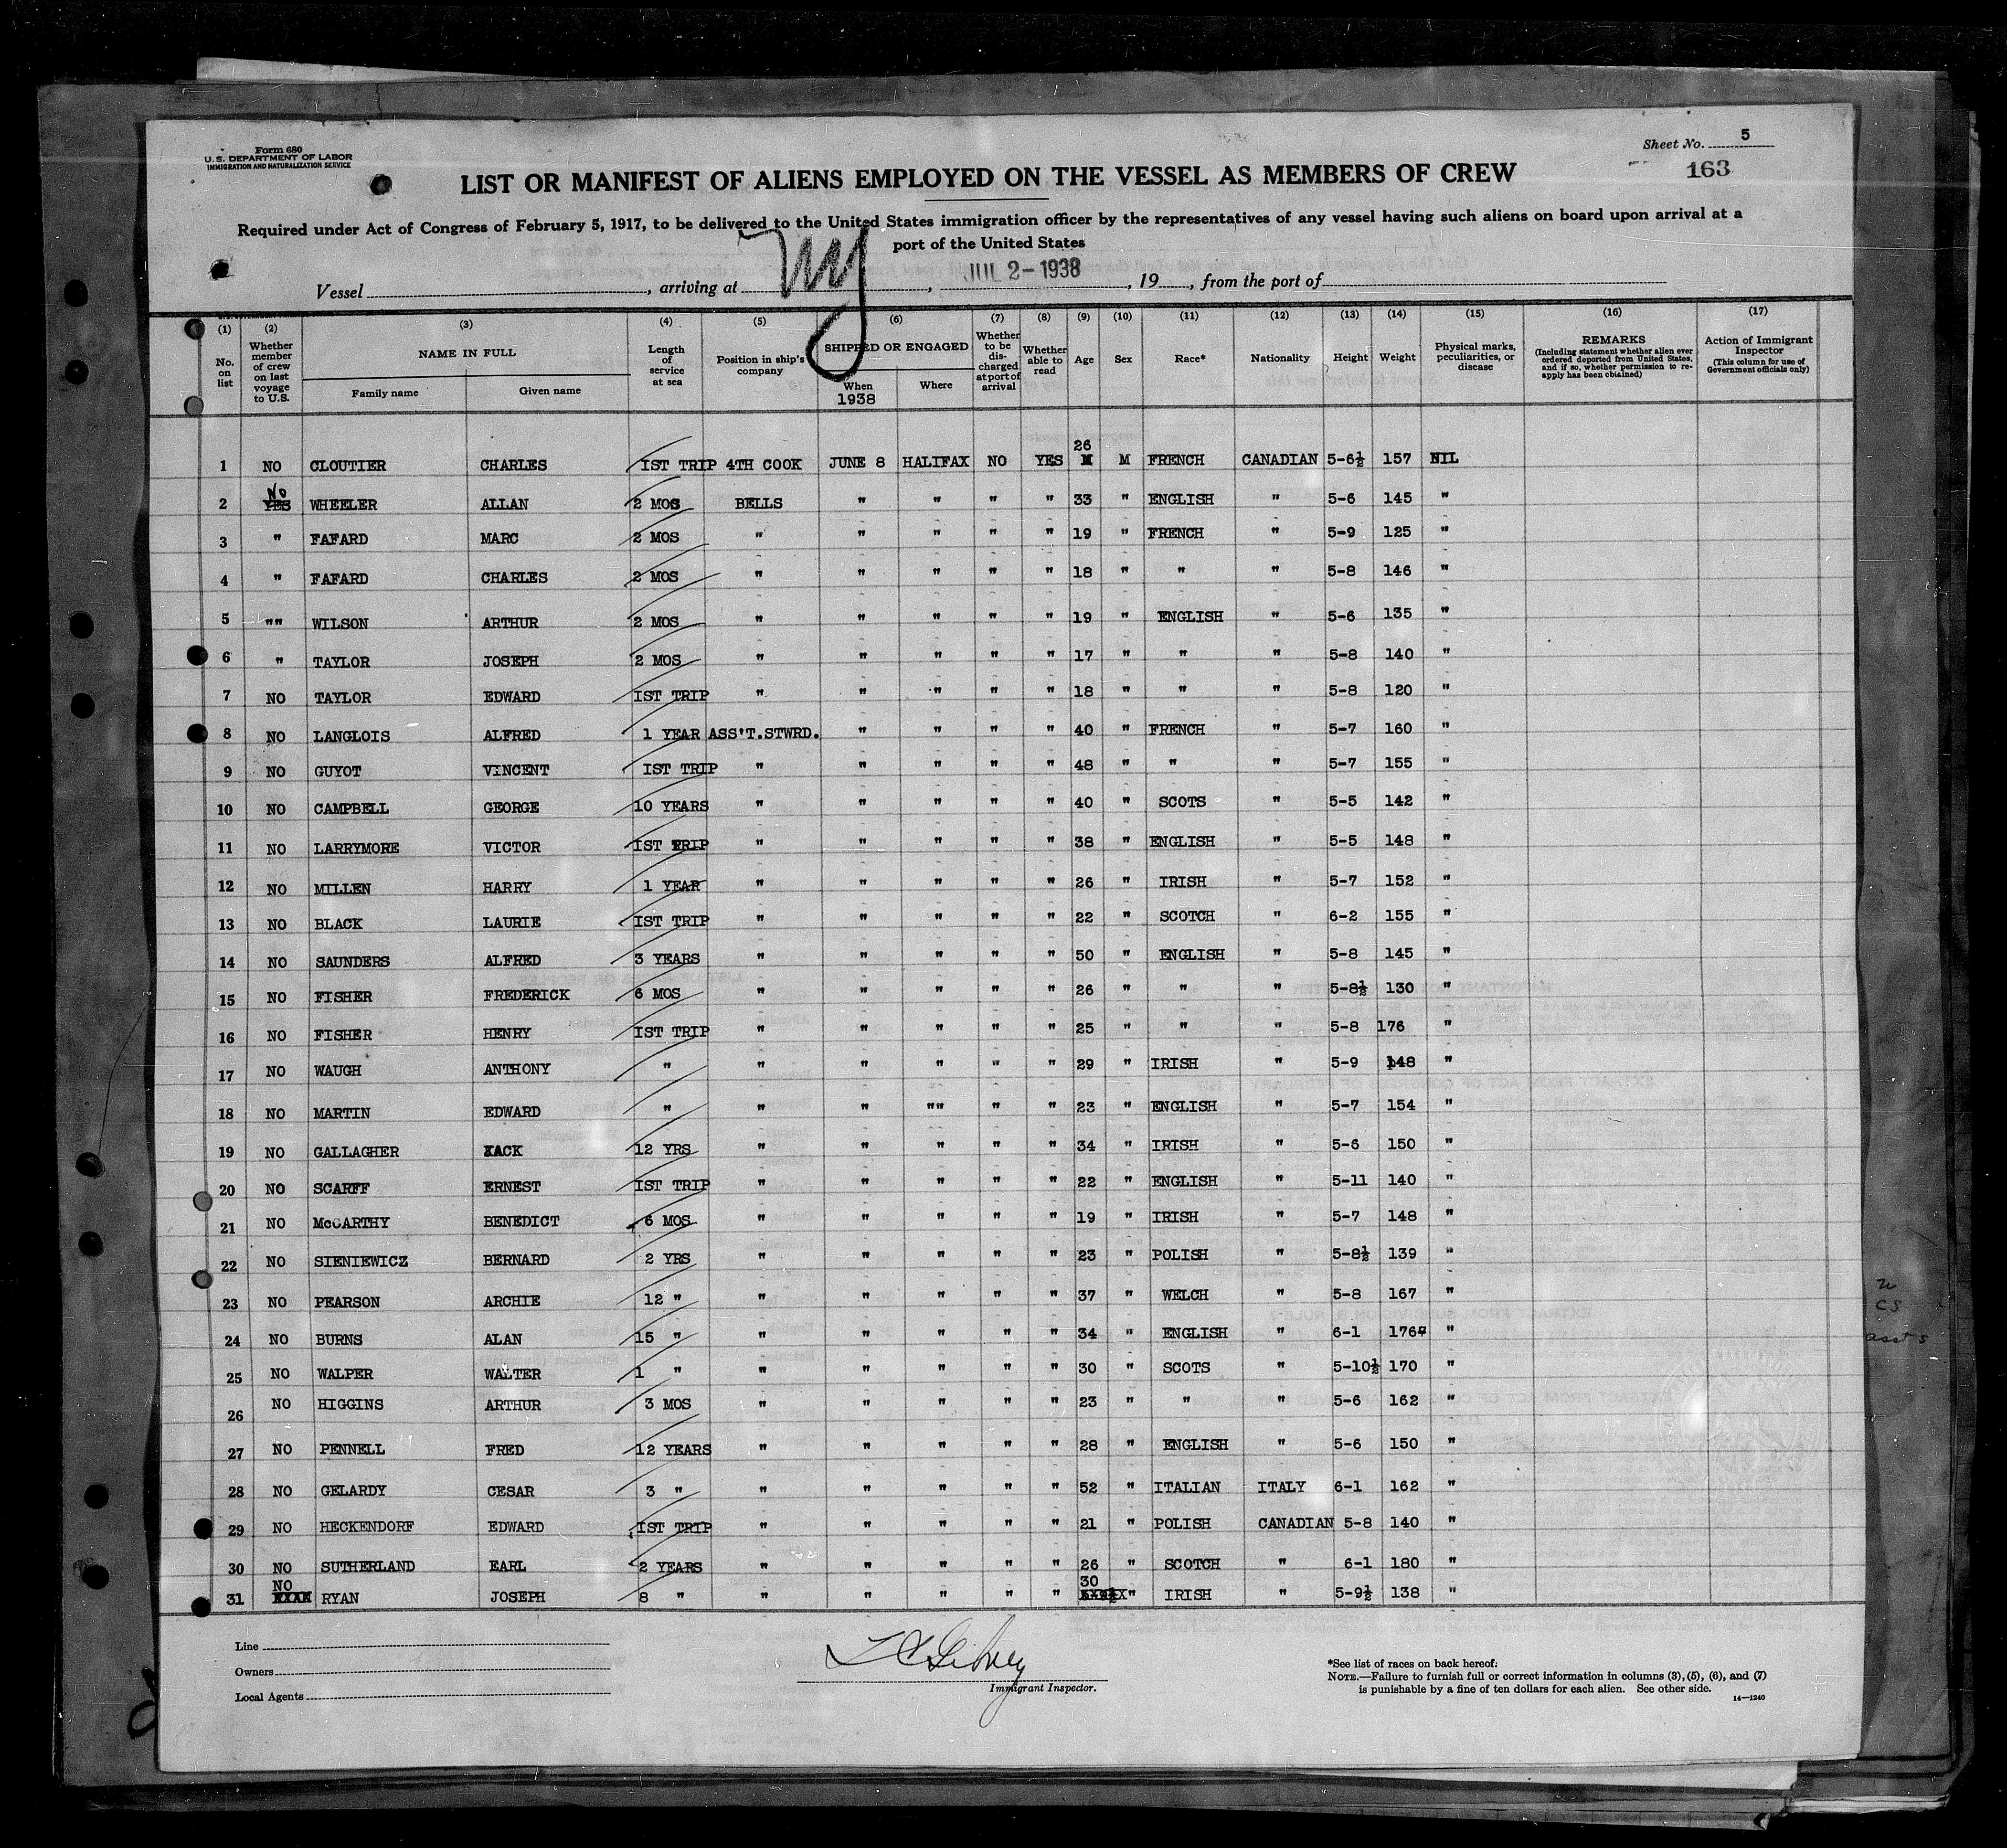 Form 680
U. S. DEPARTMENT OF LABOR
IMMIGRATION AND NATURALIZATION SERVICE
Sheet No. 5
163
LIST OR MANIFEST OF ALIENS EMPLOYED ON THE VESSEL AS MEMBERS OF CREW
Required under Act of Congress of February 5, 1917, to be delivered to the United States immigration officer by the representatives of any vessel having such aliens on board upon arrival at a
port of the United States
Vessel , arriving at NY , JUL 2-1938 , 19 , from the port of
(1) (2) (3) (4) (5) (6) (7) (8) (9) (10) (11) (12) (13) (14) (15) (16) (17)
No. on list
Whether member of crew on last voyage to U.S.
NAME IN FULL
Family name
Given name
Length of service at sea
Position in ship's company
SHIPPED OR ENGAGED
When
1938
Where
Whether to be discharged at port of arrival
Whether able to read
Age
Sex
Race*
Nationality
Height
Weight
Physical marks, peculiarities, or disease
REMARKS
(Including statement whether alien ever ordered deported from United States, and if so, whether permission to reapply has been obtained)
Action of Immigrant Inspector
(This column for use of Government officials only)
1 NO CLOUTIER CHARLES IST TRIP 4TH COOK JUNE 8 HALIFAX NO YES 26 M M FRENCH CANADIAN 5-6½ 157 NIL
2 NO YES WHEELER ALLAN 2 MOS BELLS " " " " 33 " ENGLISH " 5-6 145 "
3 " FAFARD MARC 2 MOS " " " " " 19 " FRENCH " 5-9 125 "
4 " FAFARD CHARLES 2 MOS " " " " " 18 " " " 5-8 146 "
5 "" WILSON ARTHUR 2 MOS " " " " " 19 " ENGLISH " 5-6 135 "
6 " TAYLOR JOSEPH 2 MOS " " " " " 17 " " " 5-8 140 "
7 NO TAYLOR EDWARD IST TRIP " " " " " 18 " " " 5-8 120 "
8 NO LANGLOIS ALFRED 1 YEAR ASS'T.STWRD. " " " " 40 " FRENCH " 5-7 160 "
9 NO GUYOT VINCENT IST TRIP " " " " " 48 " " " 5-7 155 "
10 NO CAMPBELL GEORGE 10 YEARS " " " " " 40 " SCOTS " 5-5 142 "
11 NO LARRYMORE VICTOR IST TRIP " " " " " 38 " ENGLISH " 5-5 148 "
12 NO MILLEN HARRY 1 YEAR " " " " " 26 " IRISH " 5-7 152 "
13 NO BLACK LAURIE IST TRIP " " " " " 22 " SCOTCH " 6-2 155 "
14 NO SAUNDERS ALFRED 3 YEARS " " " " " 50 " ENGLISH " 5-8 145 "
15 NO FISHER FREDERICK 6 MOS " " " " " 26 " " " 5-8½ 130 "
16 NO FISHER HENRY IST TRIP " " " " " 25 " " " 5-8 176 "
17 NO WAUGH ANTHONY " " " " " " 29 " IRISH " 5-9 148 "
18 NO MARTIN EDWARD " " " "" " " 23 " ENGLISH " 5-7 154 "
19 NO GALLAGHER XACK 12 YRS " " " " " 34 " IRISH " 5-6 150 "
20 NO SCARFF ERNEST IST TRIP " " " " " 22 " ENGLISH " 5-11 140 "
21 NO McCARTHY BENEDICT 6 MOS " " " " " 19 " IRISH " 5-7 148 "
22 NO SIENIEWICZ BERNARD 2 YRS " " " " " 23 " POLISH " 5-8½ 139 "
23 NO PEARSON ARCHIE 12 " " " " " " 37 " WELCH " 5-8 167 "
24 NO BURNS ALAN 15 " " " " " " 34 " ENGLISH " 6-1 176 "
25 NO WALPER WALTER 1 " " " " " " 30 " SCOTS " 5-10½ 170 "
26 NO HIGGINS ARTHUR 3 MOS " " " " " 23 " " " 5-6 162 "
27 NO PENNELL FRED 12 YEARS " " " " " 28 " ENGLISH " 5-6 150 "
28 NO GELARDY CESAR 3 " " " " " " 52 " ITALIAN ITALY 6-1 162 "
29 NO HECKENDORF EDWARD IST TRIP " " " " " 21 " POLISH CANADIAN 5-8 140 "
30 NO SUTHERLAND EARL 2 YEARS " " " " " 26 " SCOTCH " 6-1 180 "
31 NO RYAN RYAN JOSEPH 8 " " " " " " 30 " IRISH " 5-9½ 138 "
Line
Owners
Local Agents
Immigrant Inspector.
*See list of races on back hereof.
NOTE.—Failure to furnish full or correct information in columns (3), (5), (6), and (7)
is punishable by a fine of ten dollars for each alien. See other side.
14—1240